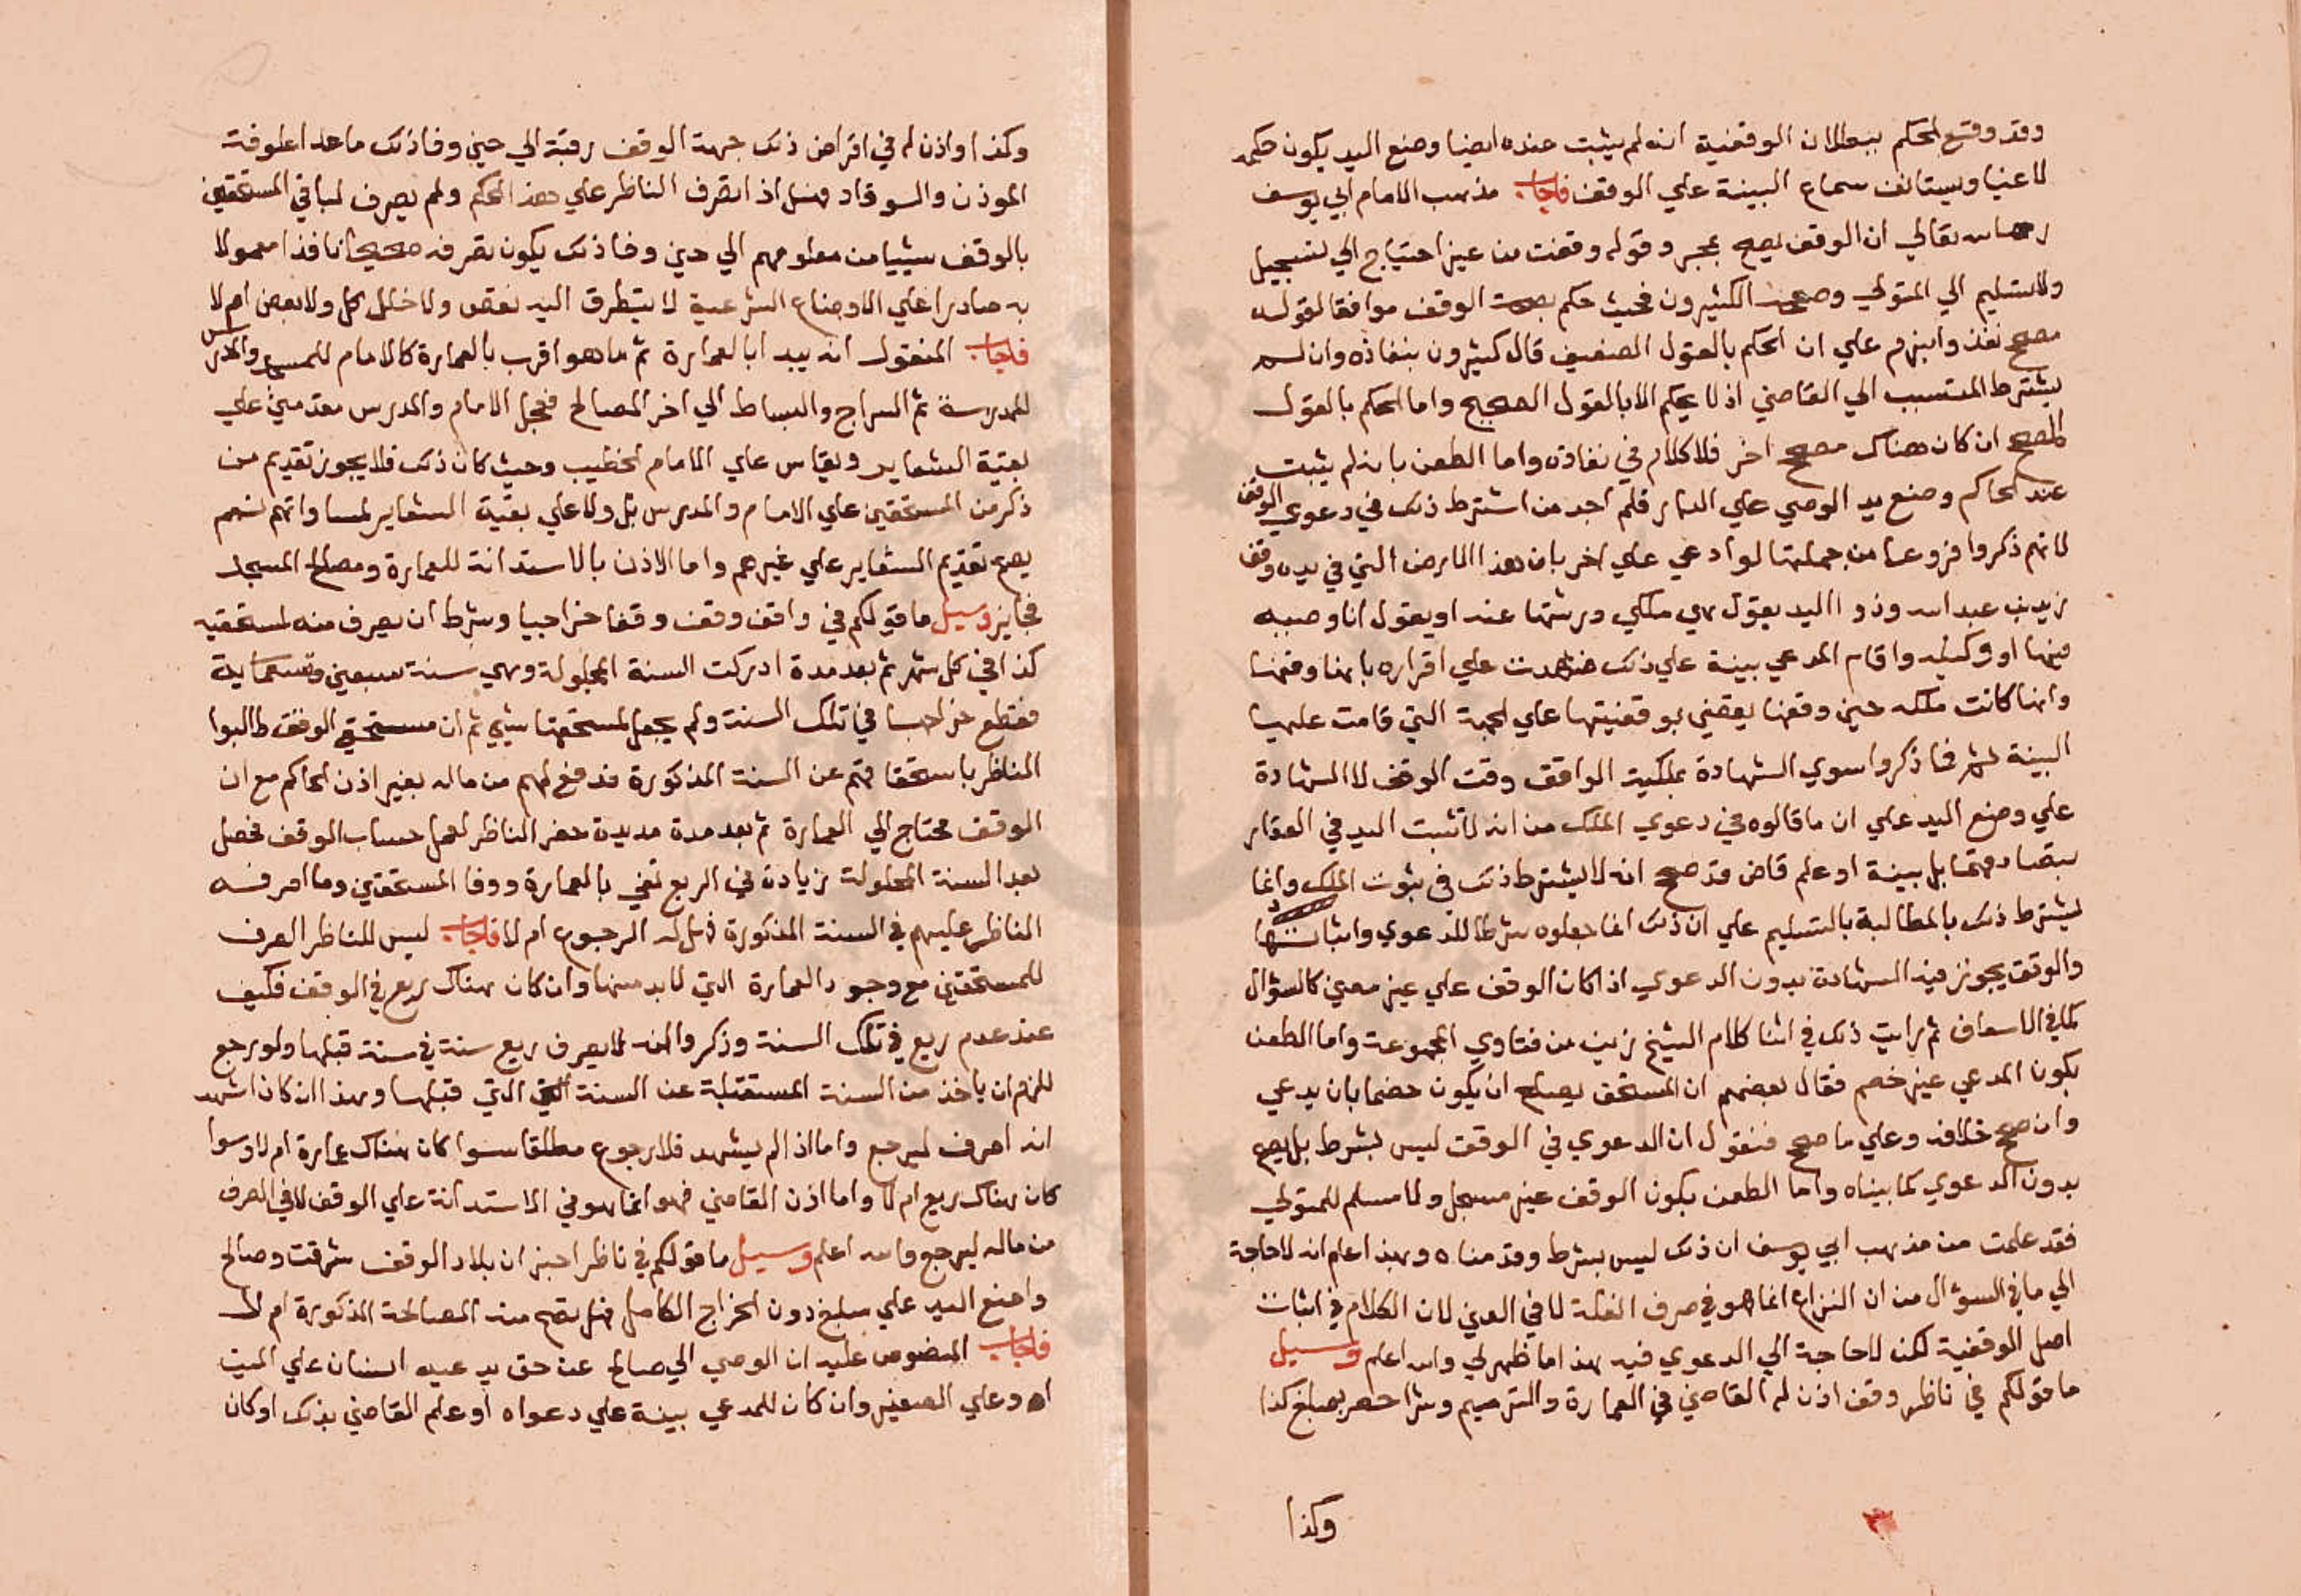 وقد وقع الحكم ببطلان الوقفية انه لم يثبت عنده ايضا وضع اليد يكون حكمه
لاغيا ويستانف سماع البينة علي الوقف فاجاب مذهب الامام ابي يوسف
رحمه الله تعالي ان الوقف يصح بمجرد قوله وقفت من غير احتياج الي تسجيل
ولا تسليم الي المتولي وصححه الكثيرون فحيث حكم بصحة الوقف موافقا لقوله
مصحح نفذ وابرم علي ان الحكم بالقول الضعيف قال كثيرون بنفاذه وان لم
يشترط المتسبب الي القاضي اذ لا يحكم الا بالقول الصحيح واما الحكم بالقول
المصحح ان كان هناك مصحح اخر فلا كلام في نفاذه واما الطعن بانه لم يثبت
عند الحاكم وضع يد الوصي علي الدار فلم اجد من اشترط ذلك في دعوي الوقف
لانهم ذكروا فروعا من جملتها لو ادعي علي اخر بان هذه الارض التي في يده وقف
زيد بن عبد الله وذو اليد يقول هي ملكي ورثتها عنه او يقول انا وصيه
فيها او وكيله واقام المدعي بينة علي ذلك فشهدت علي اقراره بانها وقفها
وانها كانت ملكه حين وقفها يقضي بوقفيتها علي الجهة التي قامت عليها
البينة فما ذكروا سوي الشهادة بملكية الواقف وقت الوقف لا الشهادة
علي وضع اليد علي ان ما قالوه في دعوي الملك من انه لا تثبت اليد في العقار
بتصادقهما بل بينة او علم قاض قد صحح انه لا يشترط ذلك في ثبوت الملك وانما
يشترط ذلك بالمطالبة بالتسليم علي ان ذلك انما جعلوه شرطا للدعوي واثباتها
والوقف يجوز فيه الشهادة بدون الدعوي اذا كان الوقف علي غير معين كالسؤال
كما في الاسعاف ثم رايت ذلك في اثنا كلام الشيخ زين من فتاوي المجموعة واما الطعن
بكون المدعي غير خصم فقال بعضهم ان المستحق يصلح ان يكون خصما بان يدعي
وان صحح خلافه وعلي ما صحح فنقول ان الدعوي في الوقف ليس بشرط بل يصح
بدون الدعوي كما بيناه واما الطعن بكون الوقف غير مسجل ولا مسلم للمتولي
فقد علمت من مذهب ابي يوسف ان ذلك ليس بشرط وقدمناه وبهذا اعلم انه لا حاجة
الي ما في السؤال من ان النزاع انما هو في صرف الغلة لا في العين لان الكلام في اثبات
اصل الوقفية لكن لا حاجة الي الدعوي فيه هذا ما ظهر لي والله اعلم وسيل
ما قولكم في ناظر وقف اذن له القاضي في العمارة والترميم وشرا حصر بمبلغ كذا
وكذا
وكذا واذن له في اقراض ذلك جهة الوقف رقبة الي حين وفا ذلك ما عدا علوفة
الموذن والسوقاد فهل اذا تصرف الناظر علي هذا الحكم ولم يصرف لباقي المستحقين
بالوقف شييا من معلومهم الي حين وفا ذلك يكون تصرفه صحيحا نافذا معمولا
به صادرا علي الاوضاع الشرعية لا يتطرق اليه نقص ولا خلل كل ولا بعض ام لا
فاجاب المنقول انه يبدا بالعمارة ثم ما هو اقرب بالعمارة كالامام للمسجد والمدرس
للمدرسة ثم السراج والبساط الي اخر المصالح فجعل الامام والمدرس مقدمين علي
بقية الشعاير ويقاس علي الامام الخطيب وحيث كان ذلك فلا يجوز تقديم من
ذكر من المستحقين علي الامام والمدرس بل ولا علي بقية الشعاير لمساواتهم لهم
يصح تقديم الشعاير علي غيرهم واما الاذن بالاستدانة للعمارة ومصالح المسجد
فجايز وسيل ما قولكم في واقف وقف وقفا خراجيا وشرط ان يصرف منه لمستحقيه
كذا في كل شهر ثم بعد مدة ادركت السنة المحلولة وهي سنة سبعين وتسعماية
فقطع خراجها في تلك السنة ولم يجعل لمستحقها شيي ثم ان مستحقي الوقف طالبوا
الناظر باستحقاقهم عن السنة المذكورة فدفع لهم من ماله بغير اذن الحاكم مع ان
الوقف محتاج الي العمارة ثم بعد مدة مديدة حضر الناظر لعمل حساب الوقف فحصل
بعد السنة المحلولة زيادة في الريع تفي بالعمارة ووفا المستحقين وما صرفه
الناظر عليهم في السنة المذكورة فهل له الرجوع ام لا فاجاب ليس للناظر الصرف
للمستحقين مع وجود العمارة التي لا بد منها وان كان هناك ريع في الوقف فكيف
عند عدم ريع في تلك السنة وذكروا انه لا يصرف ريع سنة في سنة قبلها ولو رجع
للزم ان ياخذ من السنة المستقبلة عن السنة التي قبلها وهذا ان كان اشهد
انه صرف ليرجع واما اذا لم يشهد فلا رجوع مطلقا سوا كان هناك عمارة ام لا وسوا
كان هناك ريع ام لا واما اذن القاضي فهو انما هو في الاستدانة علي الوقف لا في الصرف
من ماله ليرجع والله اعلم وسيل ما قولكم في ناظر اخبر ان بلاد الوقف شرقت وصالح
واضع اليد علي مبلغ دون الخراج الكامل فهل تصح منه المصالحة المذكورة ام لا
فاجاب المنصوص عليه ان الوصي الي صالح عن حق يدعيه انسان علي الميت
او علي الصغير وان كان للمدعي بينة علي دعواه او علم القاضي بذلك او كان